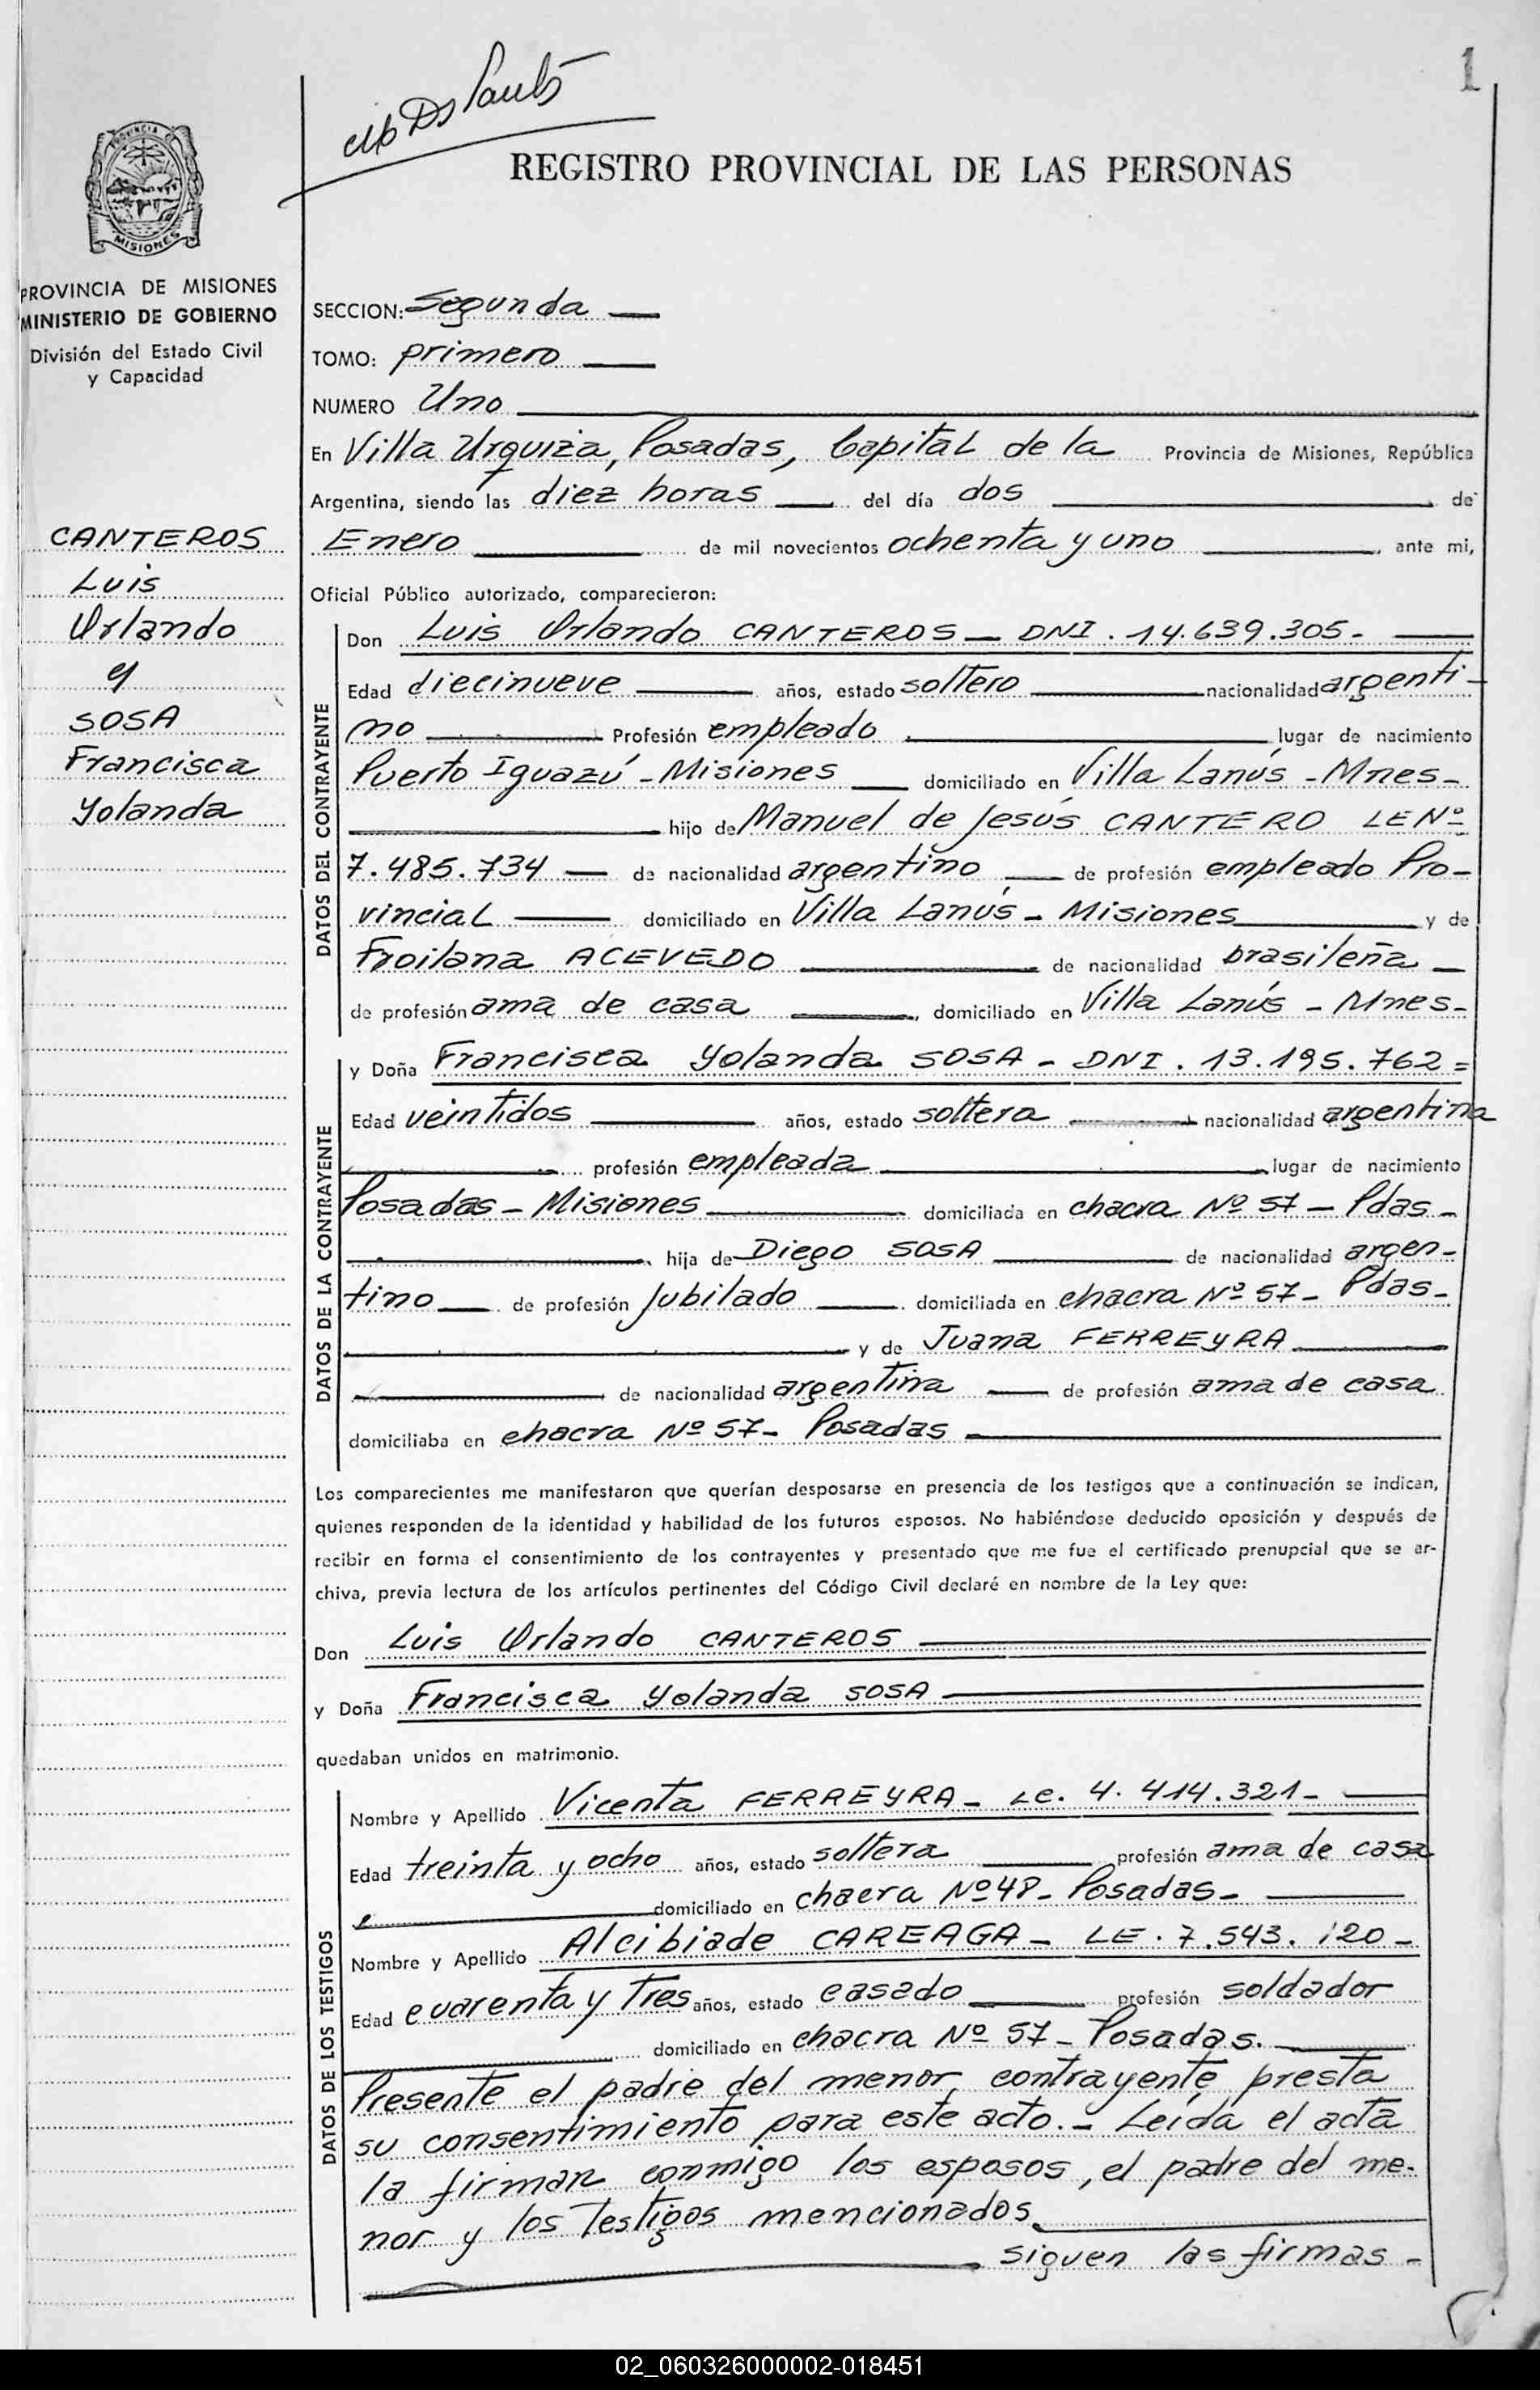 1
REGISTRO PROVINCIAL DE LAS PERSONAS
PROVINCIA DE
MISIONES
PROVINCIA DE MISIONES
MINISTERIO DE GOBIERNO
División del Estado Civil
y Capacidad
CANTEROS
Luis
Orlando
y
SOSA
Francisca
Yolanda
SECCION: Segunda
TOMO: primero
NUMERO Uno
En Villa Urquiza, Posadas, Capital de la Provincia de Misiones, República
Argentina, siendo las diez horas del día dos de
Enero de mil novecientos ochenta y uno, ante mi,
Oficial Público autorizado, comparecieron:
DATOS DEL CONTRAYENTE
Don Luis Orlando CANTEROS - DNI. 14.639.305.-
Edad diecinueve años, estado soltero nacionalidad argenti-
no Profesión empleado lugar de nacimiento
Puerto Iguazú - Misiones domiciliado en Villa Lanús - Mnes-
hijo de Manuel de Jesús CANTERO LE Nº
7.485.734 de nacionalidad argentino de profesión empleado Pro-
vincial domiciliado en Villa Lanús - Misiones y de
Froilana ACEVEDO de nacionalidad brasileña
de profesión ama de casa, domiciliado en Villa Lanús - Mnes-
DATOS DE LA CONTRAYENTE
y Doña Francisca Yolanda SOSA - DNI. 13.195.762=
Edad veintidos años, estado soltera nacionalidad argentina
profesión empleada lugar de nacimiento
Posadas - Misiones domiciliada en chacra Nº 57 - Pdas-
hija de Diego SOSA de nacionalidad argen-
tino de profesión Jubilado domiciliada en chacra Nº 57- Pdas-
y de Juana FERREYRA
de nacionalidad argentina de profesión ama de casa
domiciliaba en chacra Nº 57- Posadas
Los comparecientes me manifestaron que querían desposarse en presencia de los testigos que a continuación se indican,
quienes responden de la identidad y habilidad de los futuros esposos. No habiéndose deducido oposición y después de
recibir en forma el consentimiento de los contrayentes y presentado que me fue el certificado prenupcial que se ar-
chiva, previa lectura de los artículos pertinentes del Código Civil declaré en nombre de la Ley que:
Don Luis Orlando CANTEROS
y Doña Francisca Yolanda SOSA
quedaban unidos en matrimonio.
DATOS DE LOS TESTIGOS
Nombre y Apellido Vicenta FERREYRA - LC. 4.414.321-
Edad treinta y ocho años, estado soltera profesión ama de casa
domiciliado en chacra Nº 48- Posadas-
Nombre y Apellido Alcibiade CAREAGA - LE. 7.543.120-
Edad cuarenta y Tres años, estado casado profesión soldador
domiciliado en chacra Nº 57- Posadas.
Presente el padre del menor contrayente, presta
su consentimiento para este acto.- Leída el acta
la firman conmigo los esposos, el padre del me-
nor y los Testigos mencionados
siguen las firmas-
02_060326000002-018451